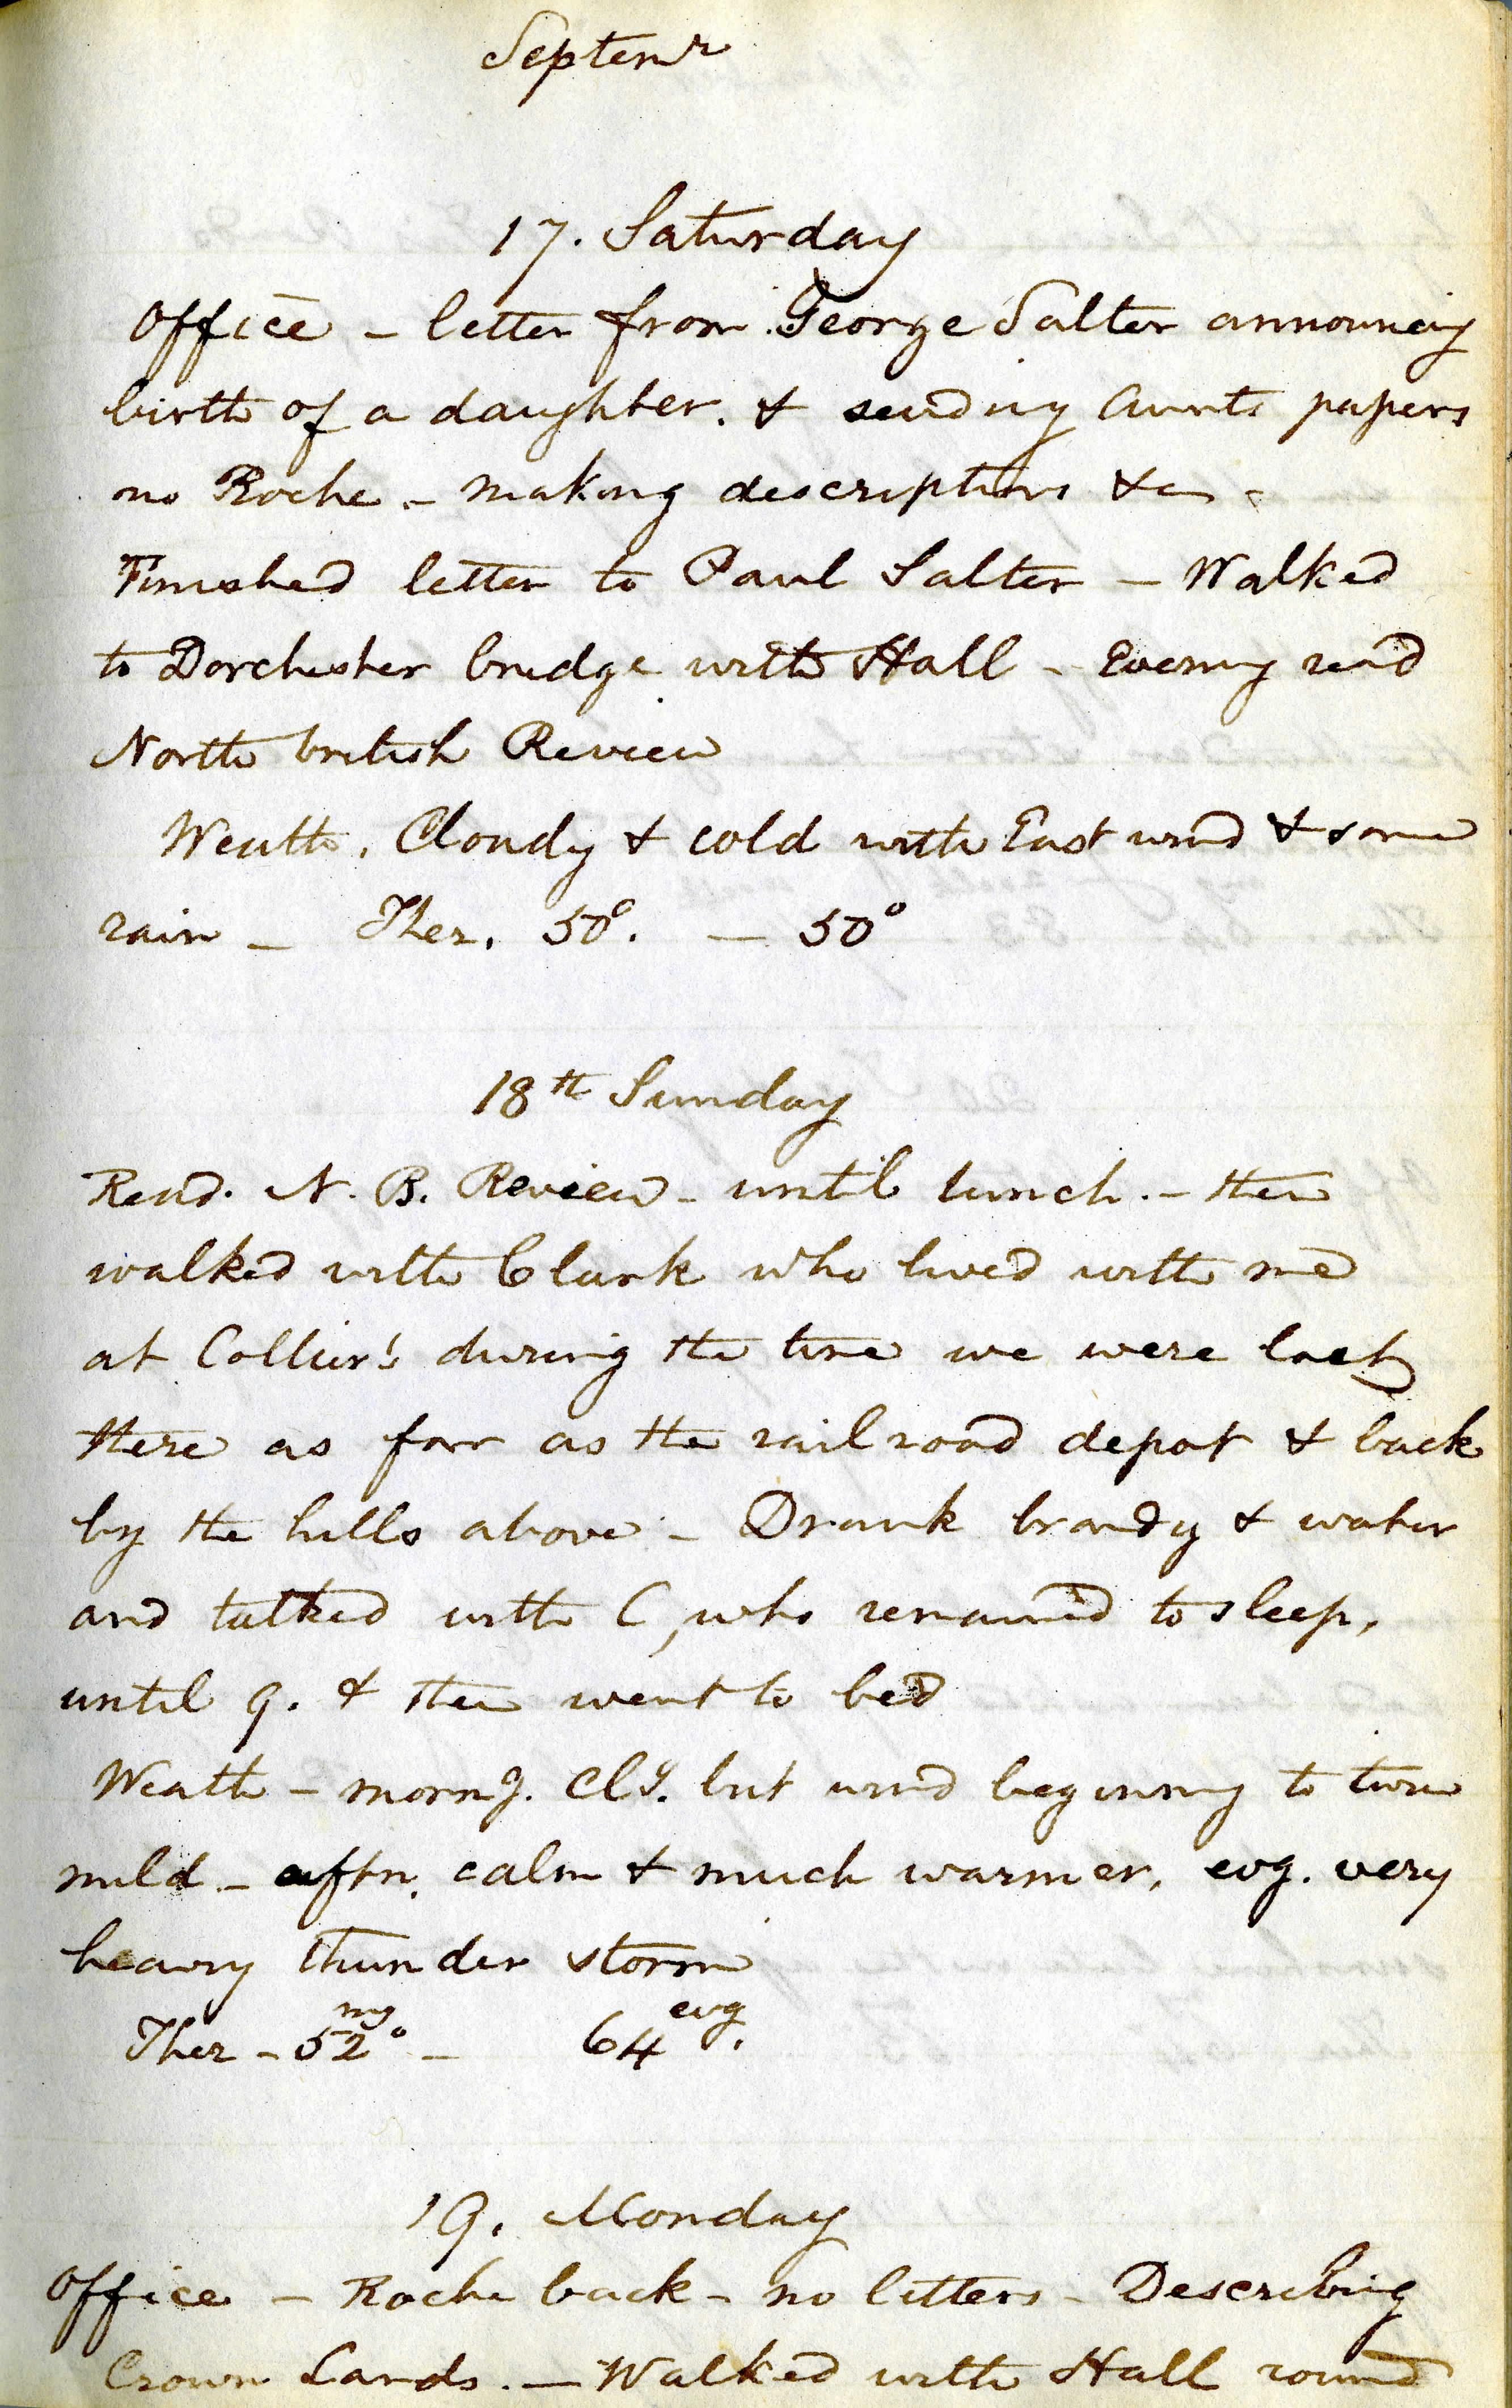 Septemr
17. Saturday
Office - letter from George Salter announcing
birth of a daughter. & sending Aunts papers
no Roche - making descriptions &c -
Finished letter to Paul Salter - Walked
to Dorchester bridge with Hall - Evening read
North british Review
Weath. Cloudy & cold with East wind & some
rain - Ther. 50°. - 50°
18th Sunday
Read. N. B. Review - until lunch. - then
walked with Clark who lived with me
at Collier's during the time we were both
there as far as the railroad depot & back
by the hills above - Drank brandy & water
and talked with C, who remained to sleep,
until 9. & then went to bed
Weath - morng. Cly. but wind beginning to turn
mild - aftn. calm & much warmer, evg. very
heavy thunder storm
Ther - 52° mg - 64 evg.
19. Monday
Office - Roche back - no letters - Describing
Crown Lands. - Walked with Hall round